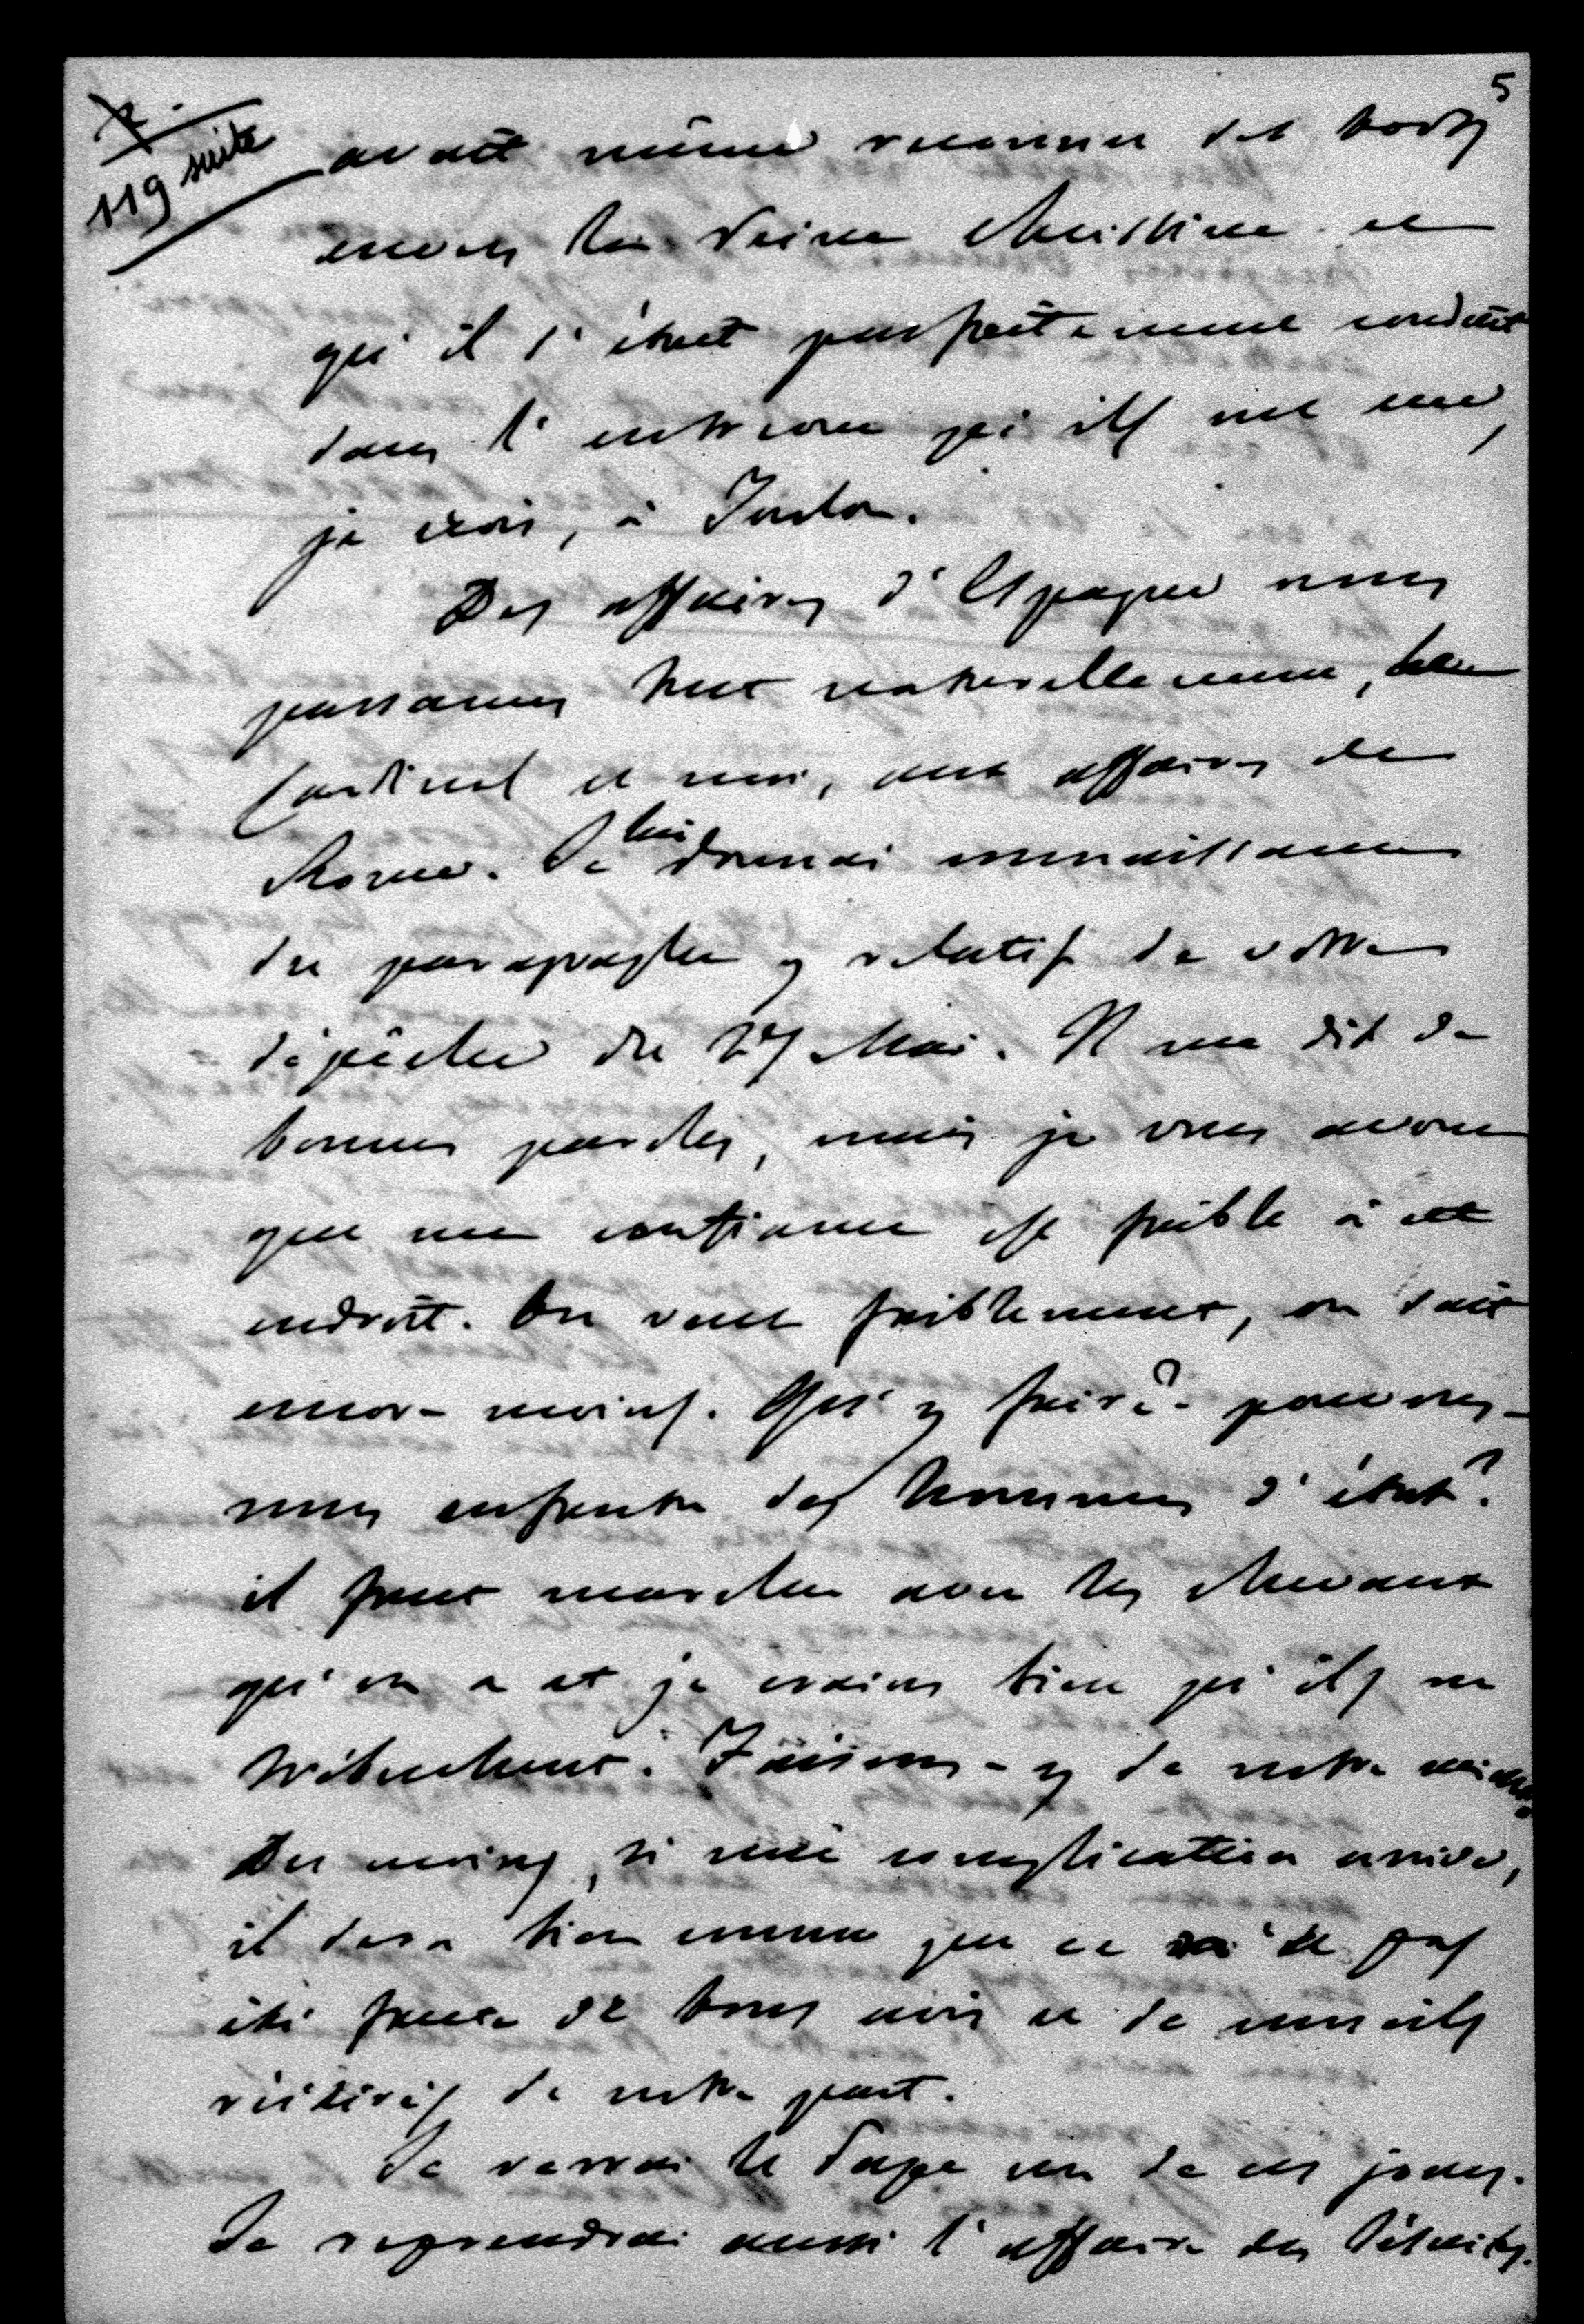 5
119 suite
avait même reconnu ses torts
envers la Reine Christine et
qu'il s'était parfaitement conduit
dans l'entrevue qu'ils ont eue,
je crois, à Toulon.
Des affaires d'Espagne nous
passames tout naturellement, le
Cardinal et moi, aux affaires de
Rome. Je lui donnai connaissance
du paragraphe y relatif de votre
dépêche du 27 Mai. Il me dit de
bonnes paroles, mais je vous avoue
que ma confiance est faible à cet
endroit. On veut faiblement, on sait
encore moins. Qu'y faire? pouvons-
nous enfanter des hommes d'état?
il faut marcher avec les chevaux
qu'on a et je crains bien qu'ils ne
trébuchent. Faisons-y de notre mieux
Du moins, si une complication arrive,
il sera bien connu que ce n'a pas
été faute de bons avis et de conseils
réitérés de notre part.
Je verrai le Pape un de ces jours.
Je reprendrai aussi l'affaire des Jésuites.